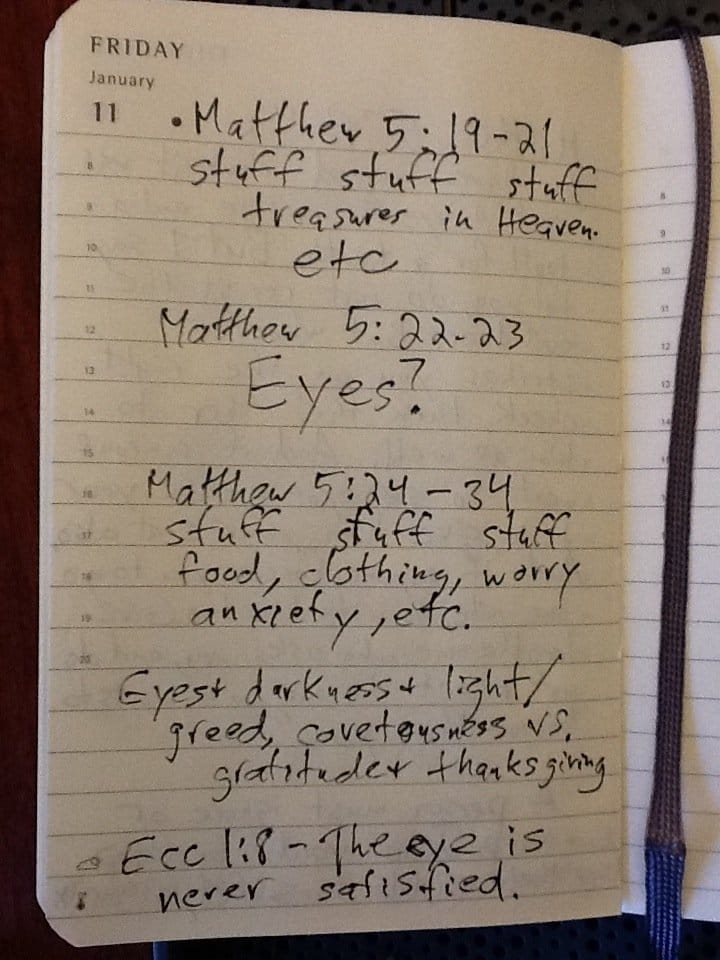 FRIDAY
January
11
• Matthew 5:19-21
stuff stuff stuff
treasures in Heaven.
etc
Matthew 5:22-23
Eyes?
Matthew 5:24-34
stuff stuff stuff
food, clothing, worry
anxiety, etc.
Eyes + darkness + light/
greed, covetousness vs.
gratitude + thanksgiving
Ecc 1:8 - The eye is
never satisfied.
8
9
10
11
12
13
14
15
16
17
18
19
20
8
9
10
11
12
13
14